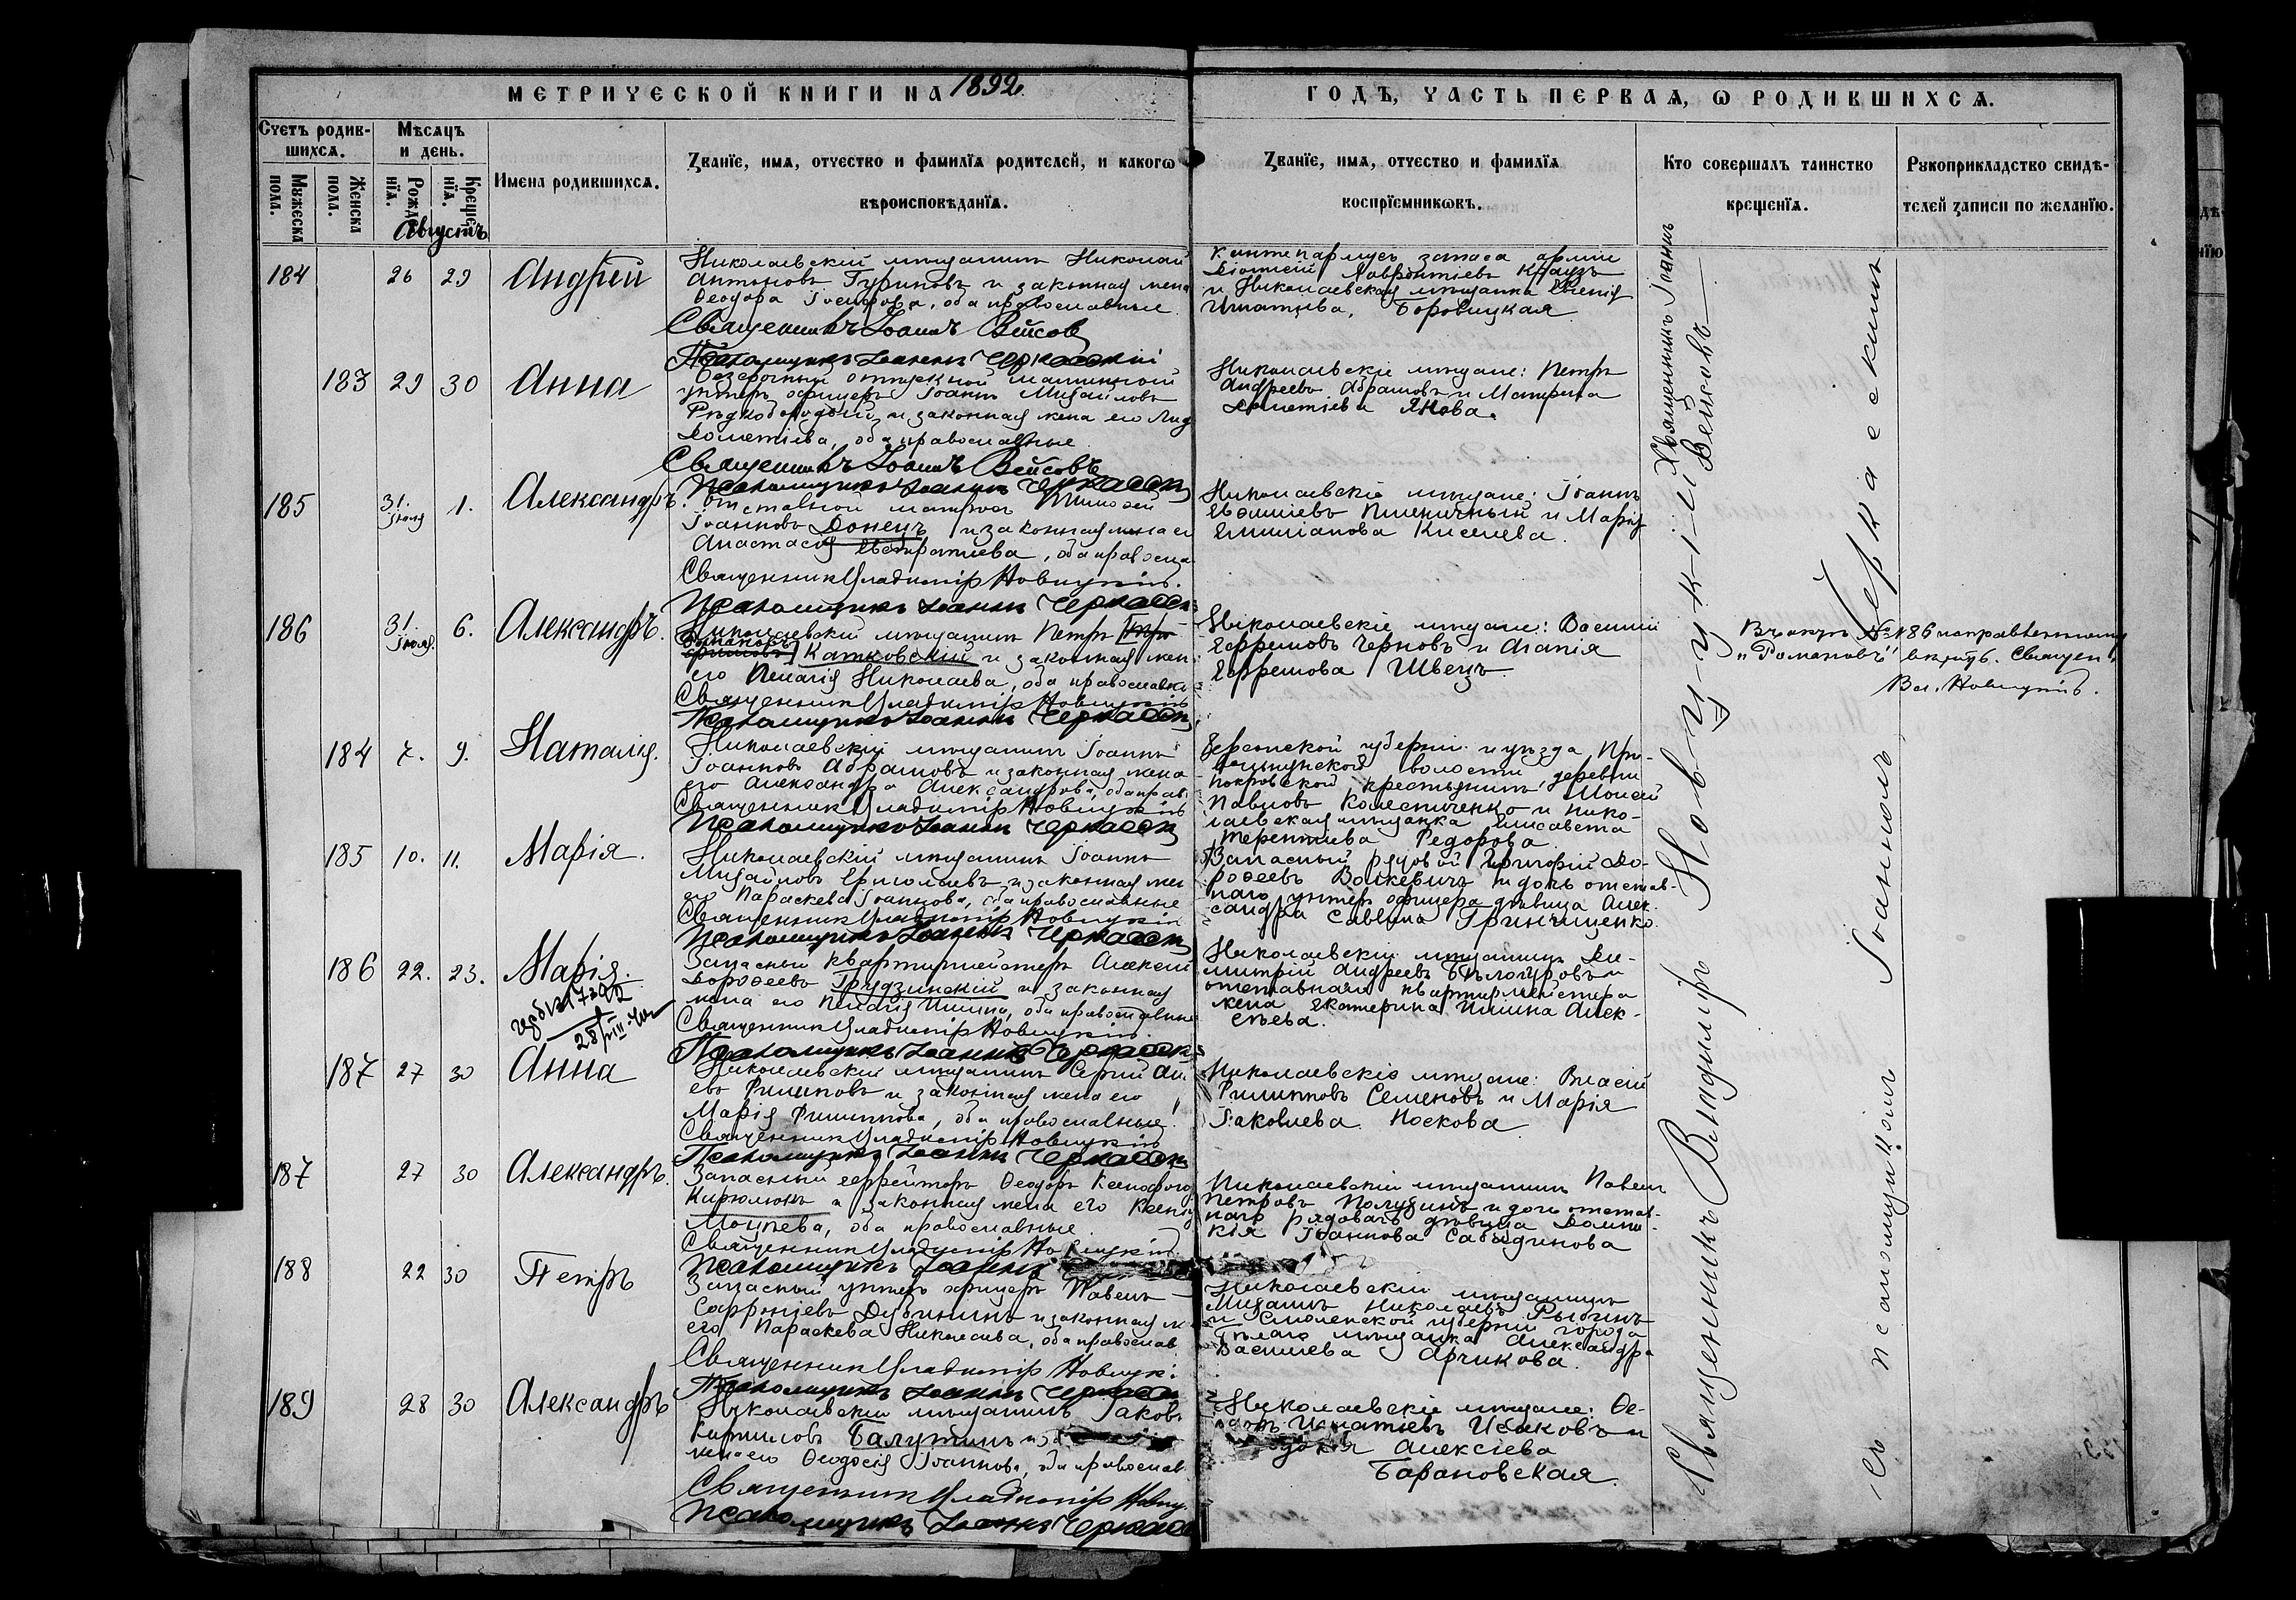 МЕТРИЧЕСКОЙ КНИГИ НА 1892
ГОДЪ, ЧАСТЬ ПЕРВАЯ, Ѡ РОДИВШИХСЯ.
Счетъ родив-
шихся.
Мужеска
пола.
Женска
пола.
Мѣсяцъ
и день.
Рожде-
нія.
Креще-
нія.
Имена родившихся.
Званіе, имя, отчество и фамилія родителей, и какогѡ
вѣроисповѣданія.
Званіе, имя, отчество и фамилія
воспріемникѡвъ.
Кто совершалъ таинство
крещенія.
Рукоприкладство свидѣ-
телей записи по желанію.
Августъ
184 26 29 Андрей
Николаевскій мѣщанинъ Николай
Антоновъ Гуриновъ и законная жена
Ѳеодора Іосифова, оба православные
Священникъ Іоаннъ Вейсовъ
Псаломщикъ Іоаннъ Черкасскій
запаса арміи
Лаврентіевъ
и Николаевская мѣщанка Евгенія
Игнатьева, Боровицкая
183 29 30 Анна
Безсрочный отпускной
унтеръ офицеръ Іоаннъ Михайловъ
и законная жена его
Дометіева, оба православные
Священникъ Іоаннъ Вейсовъ
Псаломщикъ Іоаннъ Черкасск
Николаевскіе мѣщане: Петръ
Андреевъ Абрамовъ и Матрона
Дометіева Янова.
185 31. Іюля 1. Александръ.
Отставной матросъ Тимоѳей
Іоанновъ Донецъ и законная жена ег
Анастасія Евстратіева, оба правосла
Священникъ Владиміръ Новицкій.
Псаломщикъ Іоаннъ Черкасск
Николаевскіе мѣщане: Іоаннъ
Пшеничный и Марія
Емиліанова Киселева.
186 31. Іюля. 6. Александръ.
Николаевскій мѣщанинъ Петръ
Катковскій и законная жен
его Пелагія Николаева, оба православн
Священникъ Владиміръ Новицкій
Псаломщикъ Іоаннъ Черкасск
Николаевскіе мѣщане: Василій
Ефремовъ Черновъ и Агапія
Ефремова Швецъ
Въ актѣ № 186 исправленному
„Романовъ" вѣрить. Священ.
Вл. Новицкій.
184 7. 9. Наталія.
Николаевскій мѣщанинъ Іоаннъ
Іоанновъ Абрамовъ и законная жена
его Александра Александрова, оба прав.
Священникъ Владиміръ Новицкій
Псаломщикъ Іоаннъ Черкасск
Херсонской губерніи и уѣзда, При-
волости, деревни
Покровской крестьянинъ Моисей
Павловъ Колесниченко и Нико-
лаевская мѣщанка Елисавета
Терентіева Федорова.
185 10. 11. Марія.
Николаевскій мѣщанинъ Іоаннъ
Михайловъ Ермолаевъ и законная жен
его Параскева Іоаннова, оба православные
Священникъ Владиміръ Новицкій
Псаломщикъ Іоаннъ Черкасск
Запасный рядовой Григорій До-
роѳеевъ Волкевичъ и дочь отстав-
наго унтеръ офицера дѣвица Алек-
сандра Саввина Гринчищенко.
186 22. 23. Марія.
28/VIII
Запасный квартирмейстеръ Алексій
Дороѳеевъ Грудзинскій и законная
жена его Пелагія Ильина, оба православные
Священникъ Владиміръ Новицкій.
Псаломщикъ Іоаннъ Черкасск
Николаевскій мѣщанинъ Ди-
митрій Андреевъ Бѣлогуровъ и
отставнаго квартирмейстера
жена Екатерина Ильина Алек-
сѣева.
187 27 30 Анна
Николаевскій мѣщанинъ Сергій
евъ Филиповъ и законная жена его
Марія Филиппова, оба православные.
Священникъ Владиміръ Новицкій
Псаломщикъ Іоаннъ Черкасск
Николаевскіе мѣщане: Власій
Филипповъ Семеновъ и Марія
Іаковлева Носкова
187 27 30 Александръ.
Запасный ефрейторъ Ѳеодоръ Ксенофонто
Кирлюкъ и законная жена его Ксенія
Моисеева, оба православные
Священникъ Владиміръ Новицкій
Псаломщикъ Іоаннъ
Николаевскій мѣщанинъ Павелъ
Петровъ Полубинъ и дочь отстав-
наго рядоваго дѣвица Домни-
кія Іоаннова Сабадинова
188 22 30 Петръ
Запасный унтеръ офицеръ Павелъ
Софроніевъ Дубининъ и законная ж
его Параскева Николаева, оба православ
Священникъ Владиміръ Новицкі
Псаломщикъ Іоаннъ Черкасс
Николаевскій мѣщанинъ
Михаилъ Николаевъ Рыбинъ
и Смоленской губерніи города
Бѣлаго мѣщанка Александра
Василіева Арчикова.
189 28 30 Александръ
Николаевскій мѣщанинъ Іаковъ
Кирилловъ Балутинъ и
жена его Ѳеодосія Іоаннова, оба православ
Священникъ Владиміръ Нови
Псаломщикъ Іоаннъ Черкасс
Николаевскіе мѣщане: Ѳе-
Игнатіевъ Исаковъ и
Алексіева
Барановская.
Священникъ Іоаннъ
Вейсовъ
Священникъ Владиміръ Новицкій
съ псаломщикомъ Іоанномъ Черкасскимъ